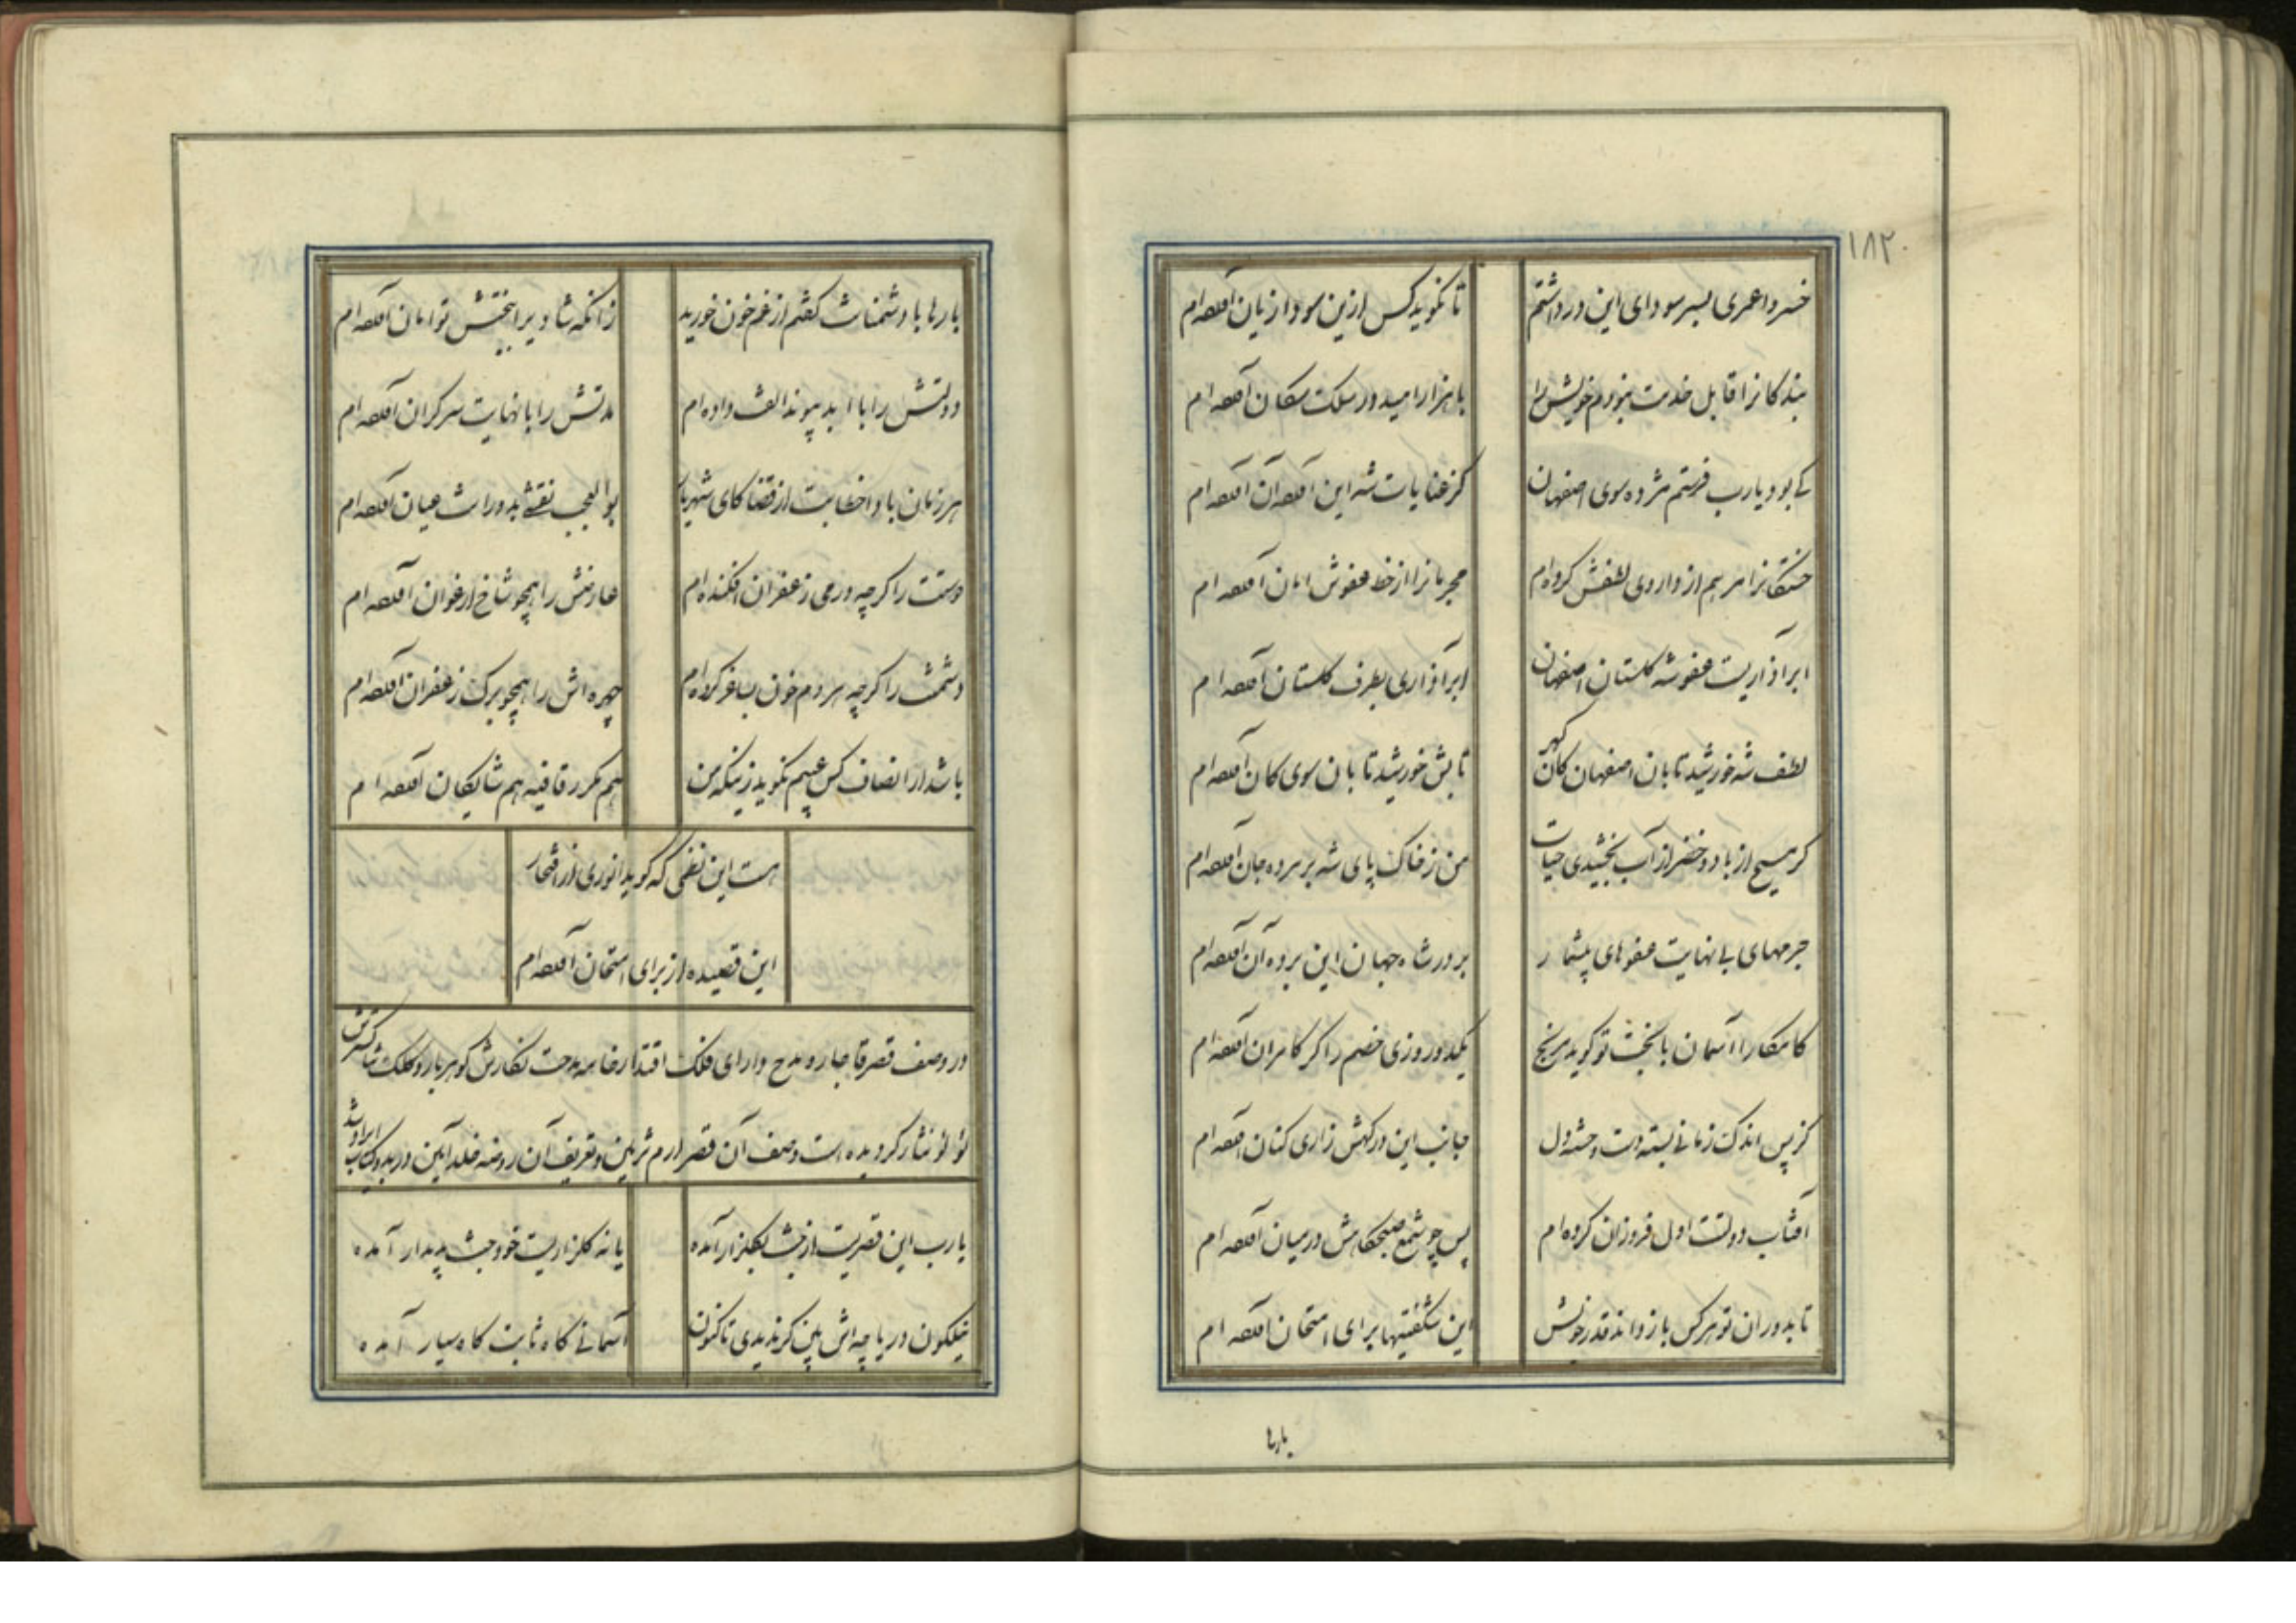 ۱۸۲
خسروا عمری بسر سودای این در داشتم
تا نکوید کس ازین سودا زیان آورده‌ام
بندکانرا قابل خدمت نبودم خویش را
با هزار امید در سلک سکان آورده‌ام
کی بود یارب فرستم مژده سوی اصفهان
کز عنایات شه این آورده آن آورده‌ام
خستکانرا مرهم از داروی لطفش کرده‌ام
مجرمانرا از خط عفوش امان آورده‌ام
ابر آذاریست عفو شه کلستان اصفهان
ابر آذاری بطرف کلستان آورده‌ام
لطف شه خورشید تابان اصفهان کان کهر
تابش خورشید تابان سوی کان آورده‌ام
کر مسیح از باد و خضر از آب بخشیدی حیات
من ز خاک پای شه بر مرده جان آورده‌ام
جرمهای بی نهایت عفوهای بیشمار
بر در شاه جهان این برده آن آورده‌ام
کامکارا آسمان با بختت تو کوید مرنج
یکدو روزی خصم را کر کامران آورده‌ام
کز پس اندک زمانی بسته دست و خسته دل
جانب این درکهش زاری کنان آورده‌ام
آفتاب دولتت اول فروزان کرده‌ام
پس چو شمع صبحکاهش در میان آورده‌ام
تا بدوران تو هر کس باز داند قدر خویش
این شکفتیها برای امتحان آورده‌ام
بارها
بارها با دشمنانت کفتم از غم خون خورید
زانکه شادی را ببختش توامان آورده‌ام
دولتش را با ابد پیوند الفت داده‌ام
مدتش را با نهایت سرکران آورده‌ام
هر زمان با او خطابست از قضا کای شهریار
بوالعجب نقشی بدورانت عیان آورده‌ام
دوستت را کرچه در می زعفران افکنده‌ام
عارضش را همچو شاخ ارغوان آورده‌ام
دشمنت را کرچه هر دم خون بساغر کرده‌ام
چهره‌اش را همچو برک زعفران آورده‌ام
باشد ار انصاف کس عیبم نکوید زینکه من
هم مکرر قافیه هم شایکان آورده‌ام
هست این نظمی که کوید انوری از افتخار
این قصیده از برای امتحان آورده‌ام
در وصف قصر قاجار و مدح دارای فلک اقتدار خامه مدحت نکارش کوهربار و کلک ثنا کسترش
لؤلؤ نثار کردیده است وصف آن قصر ارم تزیین و تعریف آن روضه خلد آیین در یدو کتاب ایراد شد
یارب این قصریست از جنت بکلزار آمده
یا نه کلزاریست خود جنت پدیدار آمده
نیلکون دریاچه‌اش بین کر ندیدی تا کنون
آسمانی کاه ثابت کاه سیار آمده